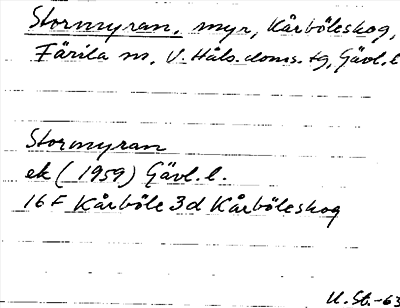 Stormyran, myr, Kårböleskog,
Färila sn, V. Häls. doms. tg, Gävl. l
Stormyran
ek (1959) Gävl. l.
16 F Kårböle 3d Kårböleskog
U. St. -63